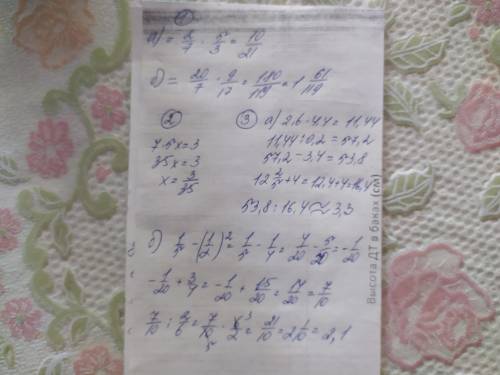 ①
а) = 2/7 · 5/3 = 10/21
б) = 20/7 · 9/17 = 180/119 = 1 61/119
②
7·5x=3
35x=3
x = 3/35
③ а) 2,6·4,4 = 11,44
11,44:0,2 = 57,2
57,2 - 3,4 = 53,8
12 2/5 + 4 = 12,4+4=16,4
53,8:16,4 ≈ 3,3
б) 1/5 - (1/2)² = 1/5 - 1/4 = 4/20 - 5/20 = -1/20
-1/20 + 3/4 = -1/20 + 15/20 = 14/20 = 7/10
7/10 : 2/6 = 7/10 · 6/2 = 21/10 = 2 1/10 = 2,1
Высота ДТ в баках (см)